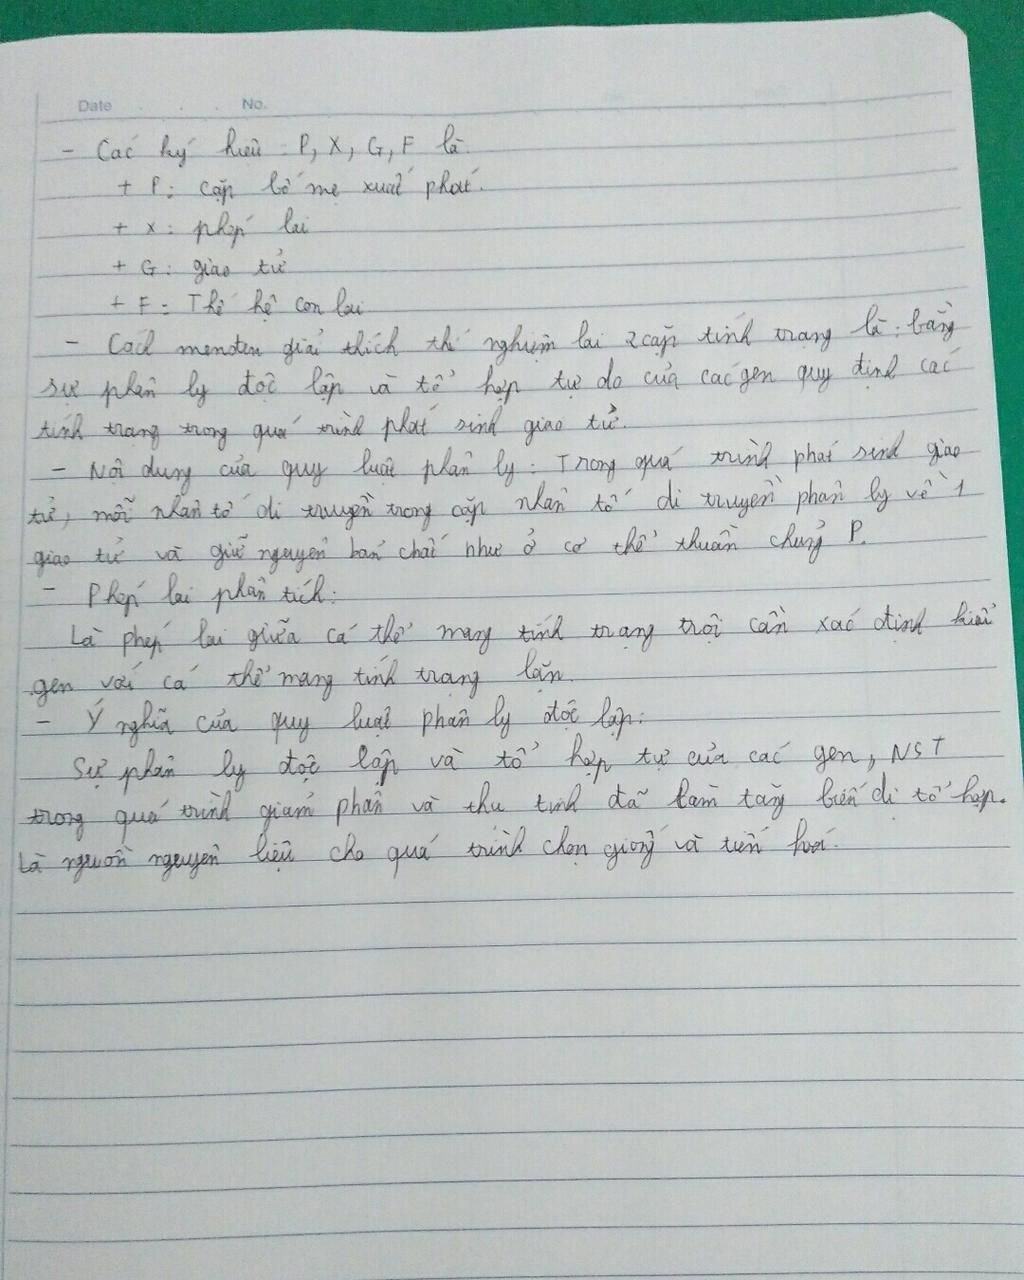 Date . . . No.
- Các ký hiệu : P, X, G, F là.
+ P: cặp bố mẹ xuất phát.
+ x: phép lai
+ G: giao tử
+ F: Thế hệ con lai
- Cách menđen giải thích thí nghiệm lai 2 cặp tính trạng là: bằng
sự phân ly độc lập và tổ hợp tự do của các gen quy định các
tính trạng trong quá trình phát sinh giao tử.
- Nội dung của quy luật phân ly: Trong quá trình phát sinh giao
tử, mỗi nhân tố di truyền trong cặp nhân tố di truyền phân ly về 1
giao tử và giữ nguyên bản chất như ở cơ thể thuần chủng P.
- Phép lai phân tích:
Là phép lai giữa cá thể mang tính trạng trội cần xác định kiểu
gen với cá thể mang tính trạng lặn.
- Ý nghĩa của quy luật phân ly độc lập:
Sự phân ly độc lập và tổ hợp tự của các gen, NST
trong quá trình giảm phân và thụ tinh đã làm tăng biến dị tổ hợp.
Là nguồn nguyên liệu cho quá trình chọn giống và tiến hoá.